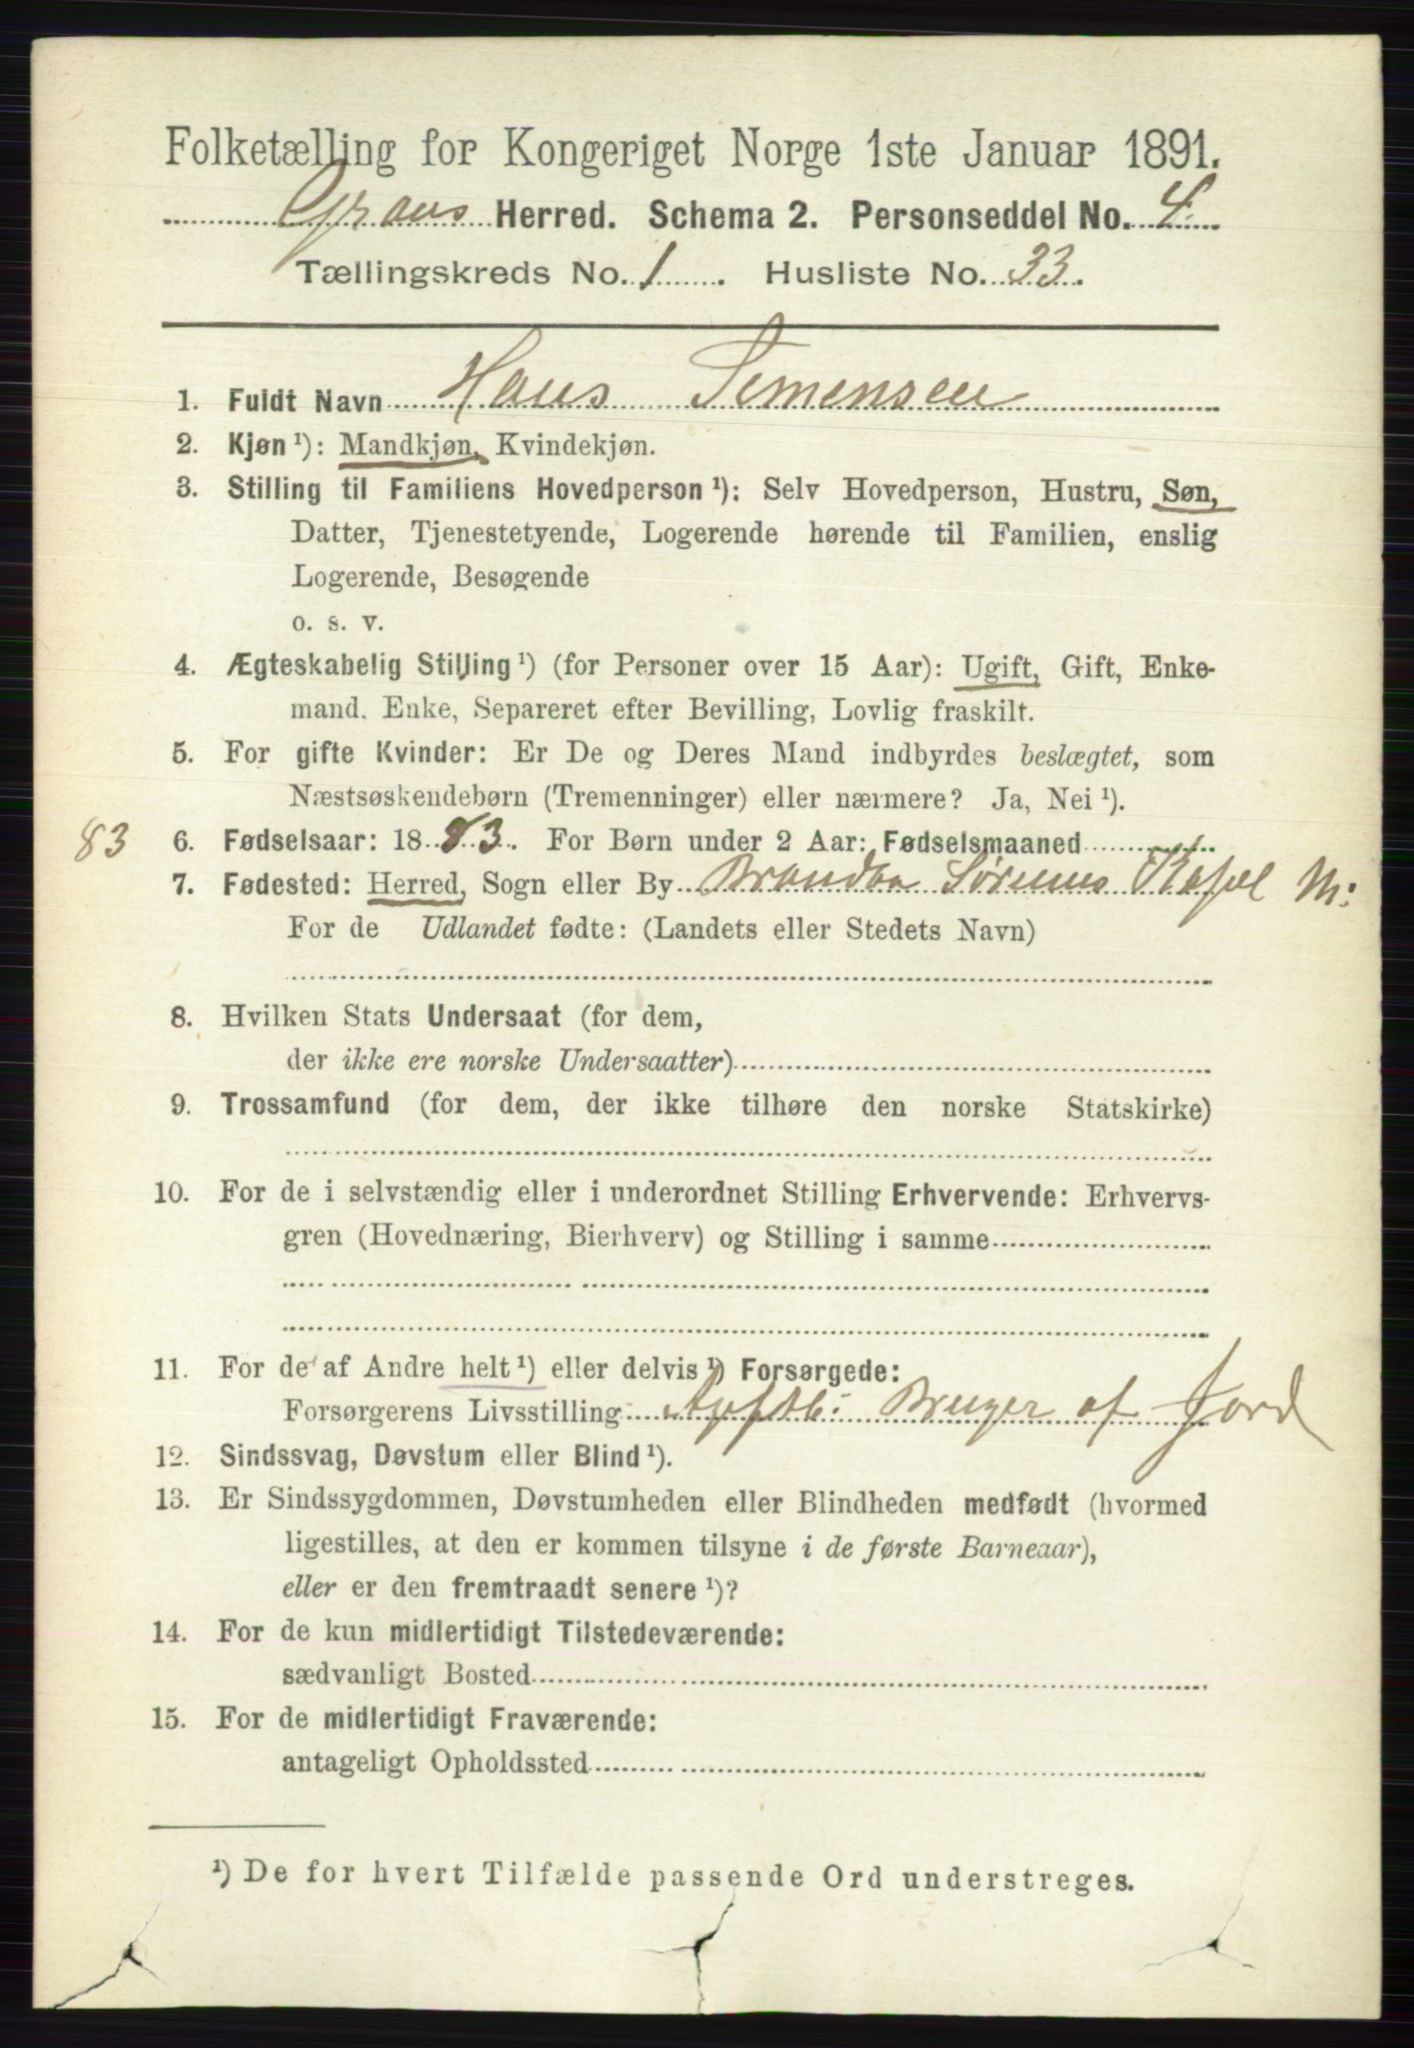 Folketælling for Kongeriget Norge 1ste Januar 1891.
Grans Herred. Schema 2. Personseddel No. 4.
Tællingskreds No. 1. Husliste No. 33.
1. Fuldt Navn Hans Simensen
2. Kjøn ¹): Mandkjøn, Kvindekjøn.
3. Stilling til Familiens Hovedperson ¹): Selv Hovedperson, Hustru, Søn,
Datter, Tjenestetyende, Logerende hørende til Familien, enslig
Logerende, Besøgende
o. s. v.
4. Ægteskabelig Stilling ¹) (for Personer over 15 Aar): Ugift, Gift, Enke-
mand, Enke, Separeret efter Bevilling, Lovlig fraskilt.
5. For gifte Kvinder: Er De og Deres Mand indbyrdes beslægtet, som
Næstsøskendebørn (Tremenninger) eller nærmere? Ja, Nei ¹).
83 6. Fødselsaar: 1883. For Børn under 2 Aar: Fødselsmaaned
7. Fødested: Herred, Sogn eller By Brandbu Sørums M:
For de Udlandet fødte: (Landets eller Stedets Navn)
8. Hvilken Stats Undersaat (for dem,
der ikke ere norske Undersaatter)
9. Trossamfund (for dem, der ikke tilhøre den norske Statskirke)
10. For de i selvstændig eller i underordnet Stilling Erhvervende: Erhvervs-
gren (Hovednæring, Bierhverv) og Stilling i samme
11. For de af Andre helt ¹) eller delvis ¹) Forsørgede:
Forsørgerens Livsstilling Bruger af Jord
12. Sindssvag, Døvstum eller Blind ¹).
13. Er Sindssygdommen, Døvstumheden eller Blindheden medfødt (hvormed
ligestilles, at den er kommen tilsyne i de første Barneaar),
eller er den fremtraadt senere ¹)?
14. For de kun midlertidigt Tilstedeværende:
sædvanligt Bosted
15. For de midlertidigt Fraværende:
antageligt Opholdssted
¹) De for hvert Tilfælde passende Ord understreges.